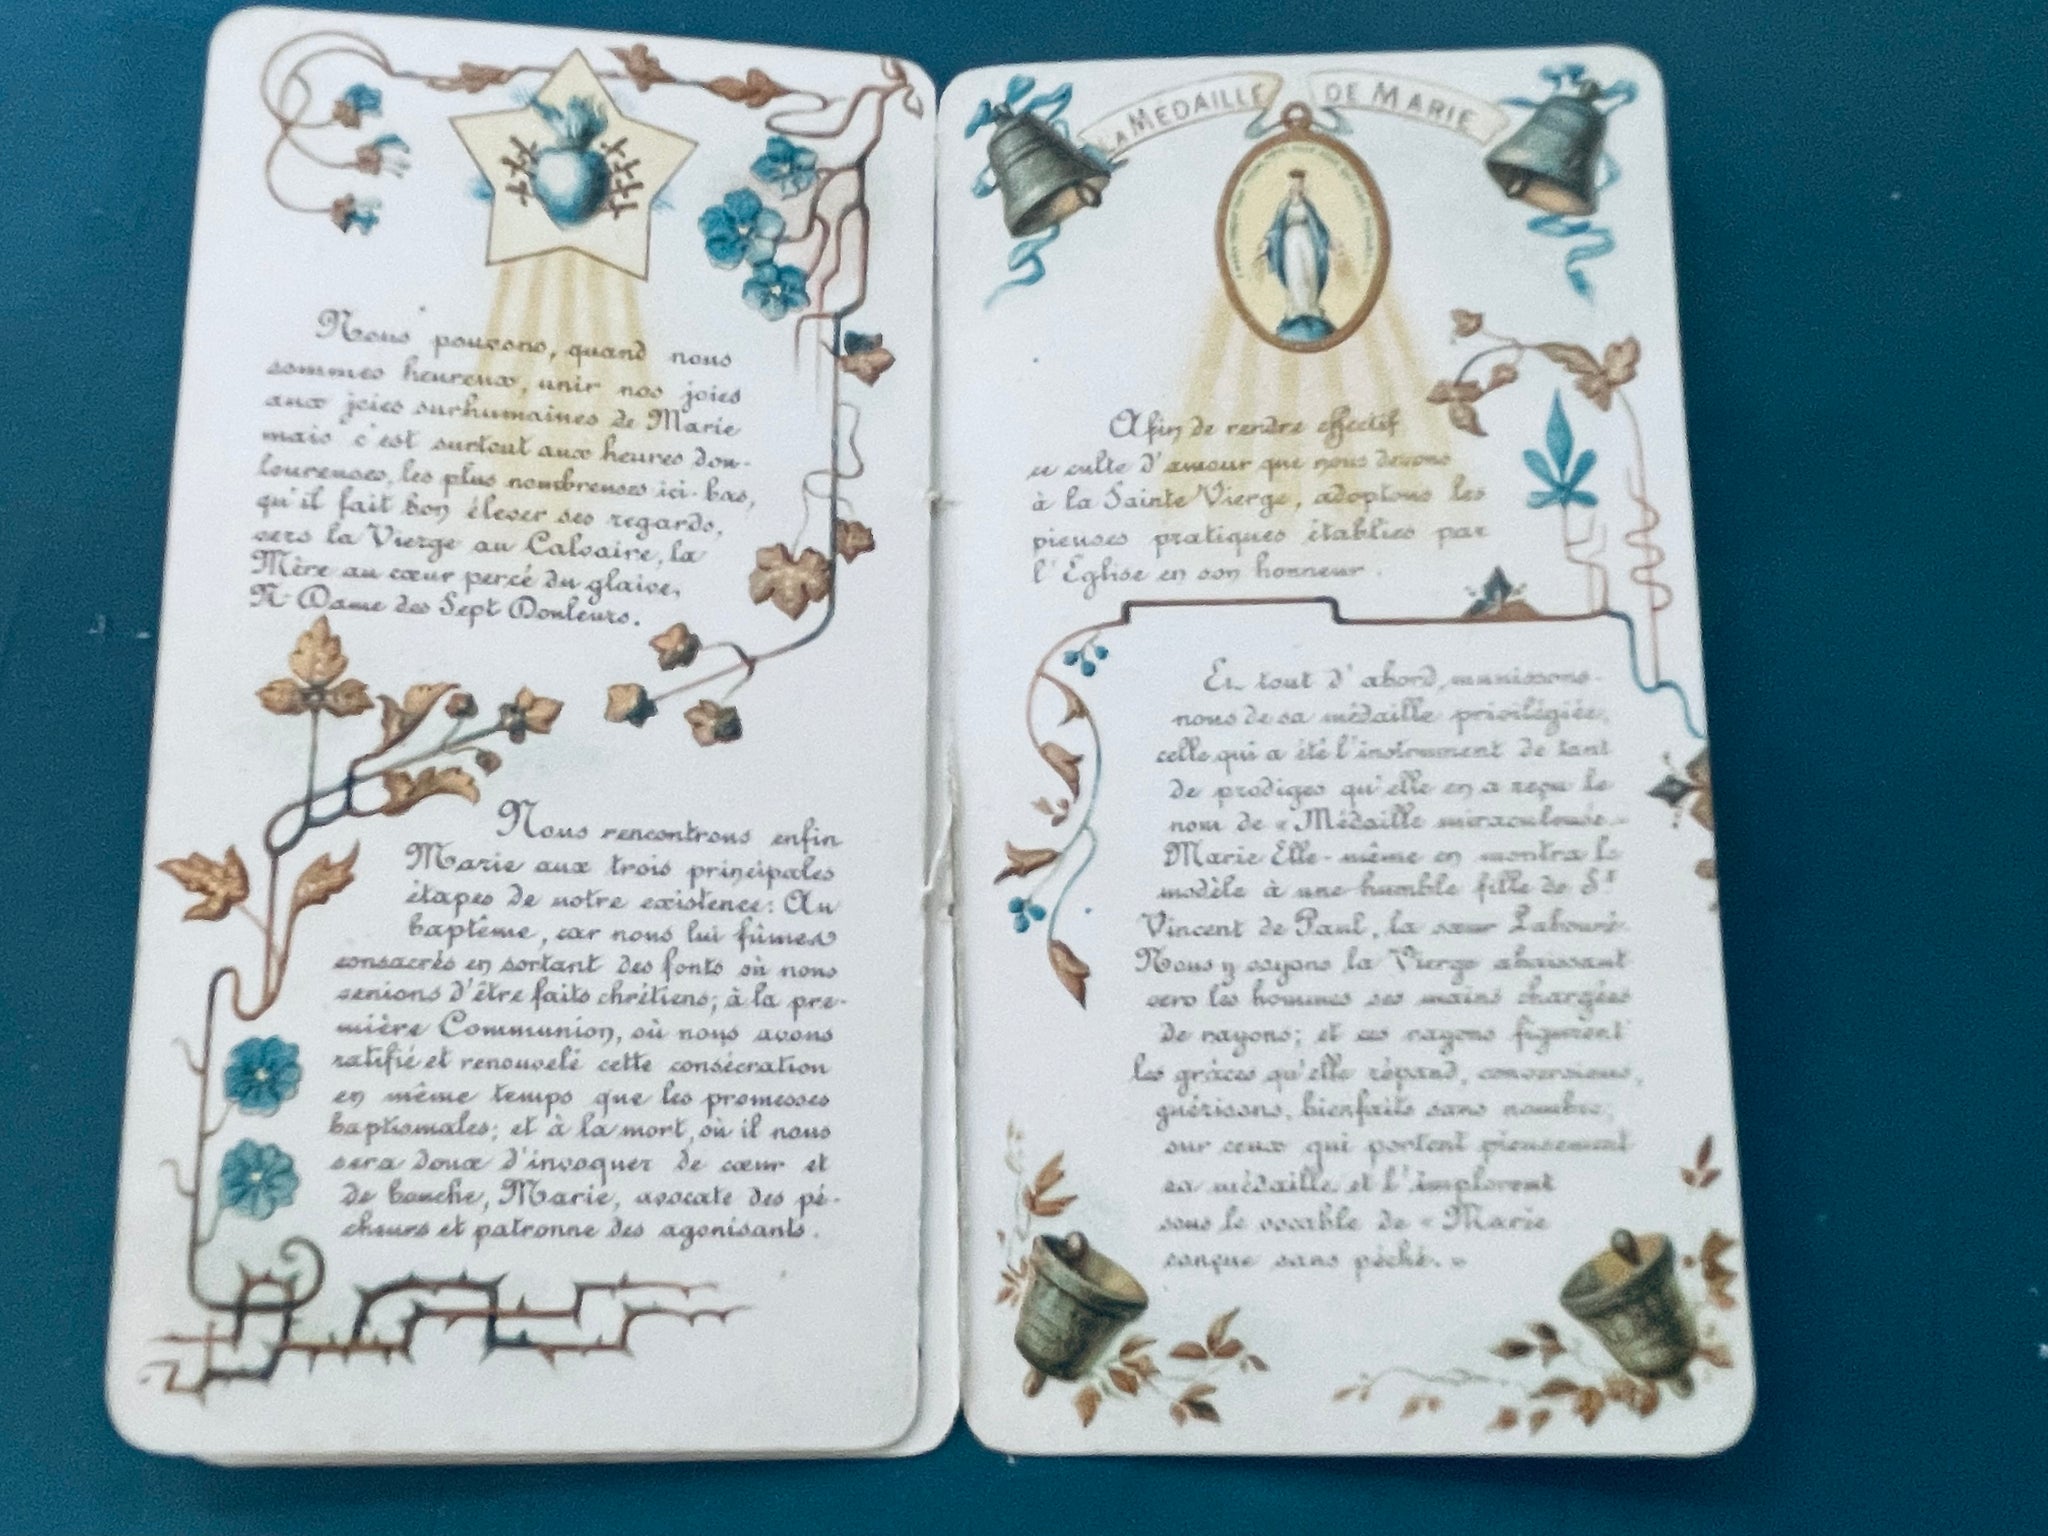 Nous pouvons, quand nous
sommes heureux, unir nos joies
aux joies surhumaines de Marie
mais c'est surtout aux heures dou-
loureuses, les plus nombreuses ici-bas,
qu'il fait bon élever ses regards,
vers la Vierge au Calvaire, la
Mère au cœur percé du glaive,
N-Dame des Sept Douleurs.
Nous rencontrons enfin
Marie aux trois principales
étapes de notre existence: Au
baptême, car nous lui fûmes
consacrés en sortant des fonts où nous
venions d'être faits chrétiens; à la pre-
mière Communion, où nous avons
ratifié et renouvelé cette consécration
en même temps que les promesses
baptismales; et à la mort, où il nous
sera doux d'invoquer de cœur et
de bouche, Marie, avocate des pé-
cheurs et patronne des agonisants.
LA MEDAILLE DE MARIE
Afin de rendre effectif
ce culte d'amour que nous devons
à la Sainte Vierge, adoptons les
pieuses pratiques établies par
l'Eglise en son honneur.
Et tout d'abord, munissons-
nous de sa médaille privilégiée,
celle qui a été l'instrument de tant
de prodiges qu'elle en a reçu le
nom de « Médaille miraculeuse.»
Marie Elle-même en montra le
modèle à une humble fille de St
Vincent de Paul, la sœur Labouré.
Nous y voyons la Vierge abaissant
vers les hommes ses mains chargées
de rayons; et ces rayons figurent
les grâces qu'elle répand, conversions,
guérisons, bienfaits sans nombre,
sur ceux qui portent pieusement
sa médaille et l'implorent
sous le vocable de « Marie
conçue sans péché. »